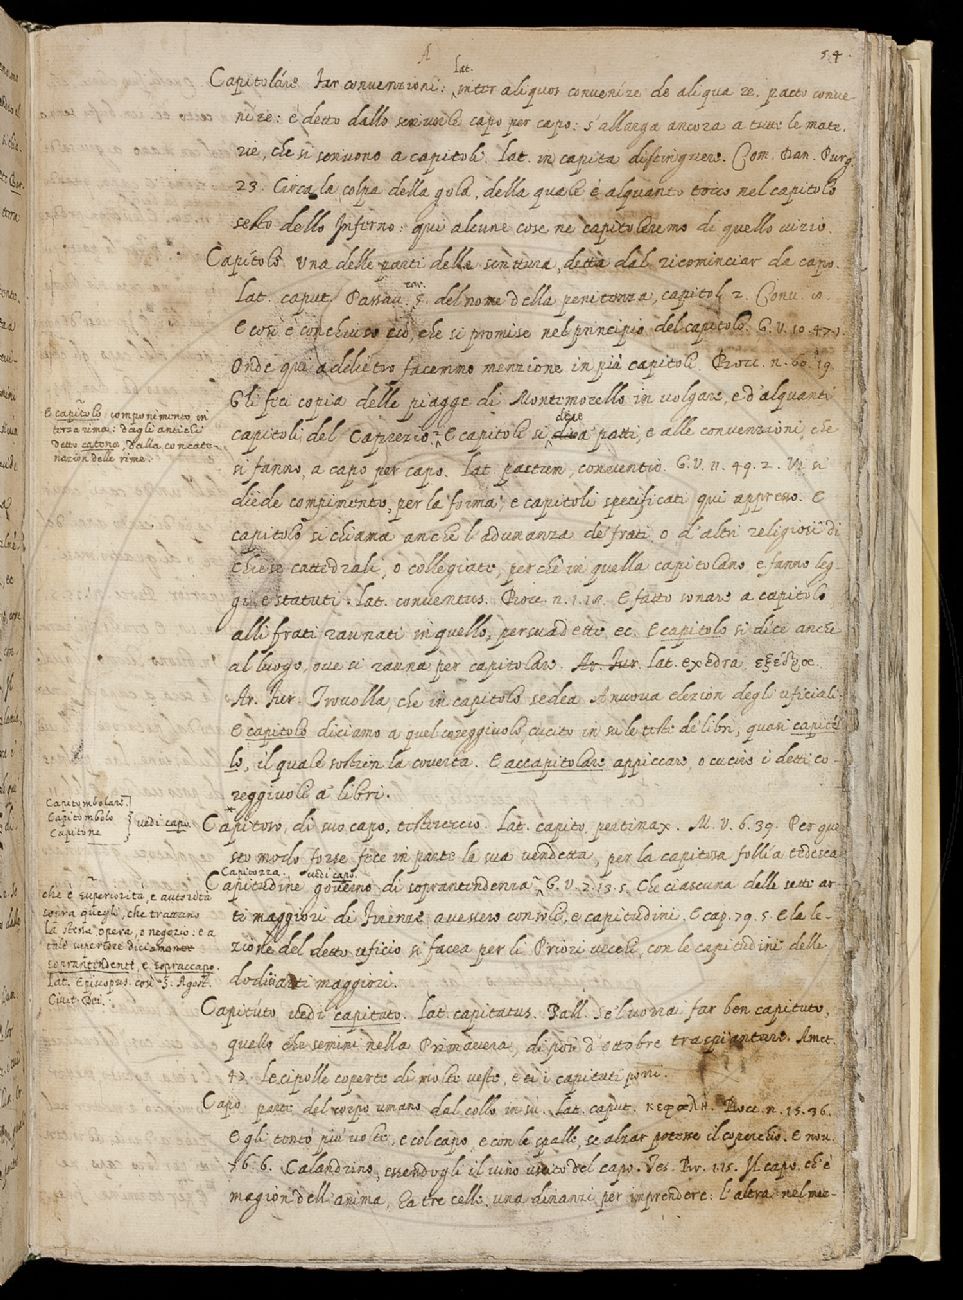 A
54.
Capitolare far convenzioni: Lat. inter aliquos convenire de aliqua re. pacto conve-
nire: è detto dallo scriversi capo per capo: s'allarga ancora a tutte le mate-
rie, che si scrivono a capitoli. Lat. in capita distinguere. Com. Dan. Purg.
23. Circa la colpa della gola, della quale è alquanto tocco nel capitolo
sesto dello Inferno: qui alcune cose ne capitoleremo di quello vizio.
Capitolo. Una delle parti della scrittura, detta dal ricominciar da capo.
Lat. caput. Passav. del nome della penitenza, capitol. 2. Conv.
E così è conchiuso ciò, che si promise nel principio del capitolo. G. V. 10. 47.
Onde qui addietro facemmo menzione in più capitoli. Bocc. n. 60. 19.
Gli feci copia delle piagge di Montemorello in volgare, e d'alquanti
capitoli del Caprezio. E capitoli si dice a patti, e alle convenzioni, che
si fanno, a capo per capo. Lat. pactum, conventio. G. V. 11. 49. 2. Vi si
diede compimento, per la forma, e capitoli specificati qui appresso. E
capitolo si chiama anche l'adunanza de' frati, o d'altri religiosi di
chiese cattedrali, o collegiate, perchè in quella capitolano, e fanno leg-
gi, e statuti. Lat. conventus. Bocc. n. 1. 18. E fatto sonare a capitolo,
alli frati raunati in quello, persuadette, ec. E capitolo si dice anche
al luogo, ove si rauna per capitolare. Ar. Fur. Lat. exedra, ἐξέδρα.
Ar. Fur. Trovolla, che in capitolo sedea A nuova elezion degli uficiali.
E capitolo diciamo a quel coreggiuolo, cucito in su le teste de' libri, quasi capitel-
lo, il quale sostien la coverta. E accapitolare appiccare, o cucire i detti co-
reggiuoli a' libri.
Capitoso, di suo capo, testereccio. Lat. capito, pertinax. M. V. 6. 39. Per que-
sto modo forse fece in parte la sua vendetta, per la capitosa follia tedesca
Capitozza. vedi capo.
Capitudine governo di soprantendenza. G. V. 7. 13. 5. Che ciascuna delle sette ar-
ti maggiori di Firenze avessero consoli, e capitudini. E cap. 79. 5. E la le-
zione del detto uficio si facea per li Priori vecchi, con le capitudini delle
dodici arti maggiori.
Capituto, vedi capitato. Lat. capitatus. Pall. Se 'l vorrai far ben capituto,
quello che semini nella Primavera, di poi d'ottobre traspiantare. Amet.
47. Le cipolle coperte di molte veste, e ci i capitati porri.
Capo parte del corpo umano dal collo in su. Lat. caput. κεφαλή. Bocc. n. 15. 36.
Egli tentò più volte, e col capo, e con le spalle, se alzar potesse il coperchio. E nov.
76. 6. Calandrino, essendogli il vino uscito del capo. Tes. Br. 1. 15. Il capo, ch'è
magion dell'anima, ha tre celle, una dinanzi per imprendere: l'altra nel mez-
E capitolo, componimento in
terza rima: dagli antichi
detto catena, dalla concate-
nazion delle rime.
Capitombolare.
Capitombolo
Capitone
vedi capo
che è superiorità, e autorità
sopra quegli, che trattano
la stessa opera, e negozio: e a
tale superiore diciamo
soprantendente, e sopraccapo.
Lat. Episcopus. così S. Agost.
Civit. Dei.